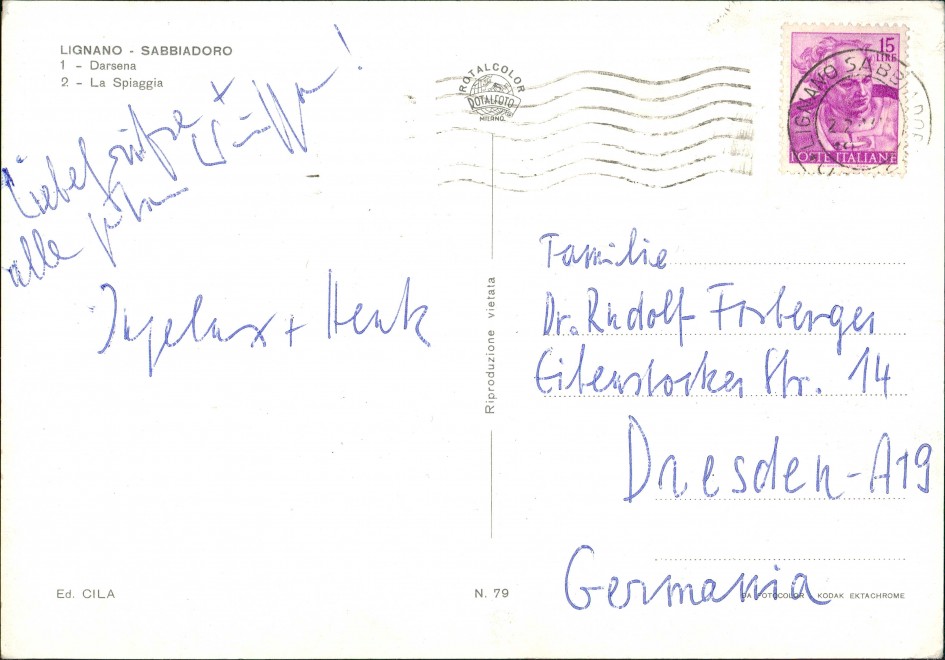 LIGNANO - SABBIADORO
1 - Darsena
2 - La Spiaggia
Liebe Grüße +
alle
+ Henk
ROTALCOLOR
ROTALFOTO
MILANO
Riproduzione vietata
15
LIRE
POSTE ITALIANE
LIGNANO SABBIADORO
Familie
Dr. Rudolf Forberger
Eibenstocker Str. 14
Dresden-A19
Germania
Ed. CILA
N. 79
DA FOTOCOLOR KODAK EKTACHROME